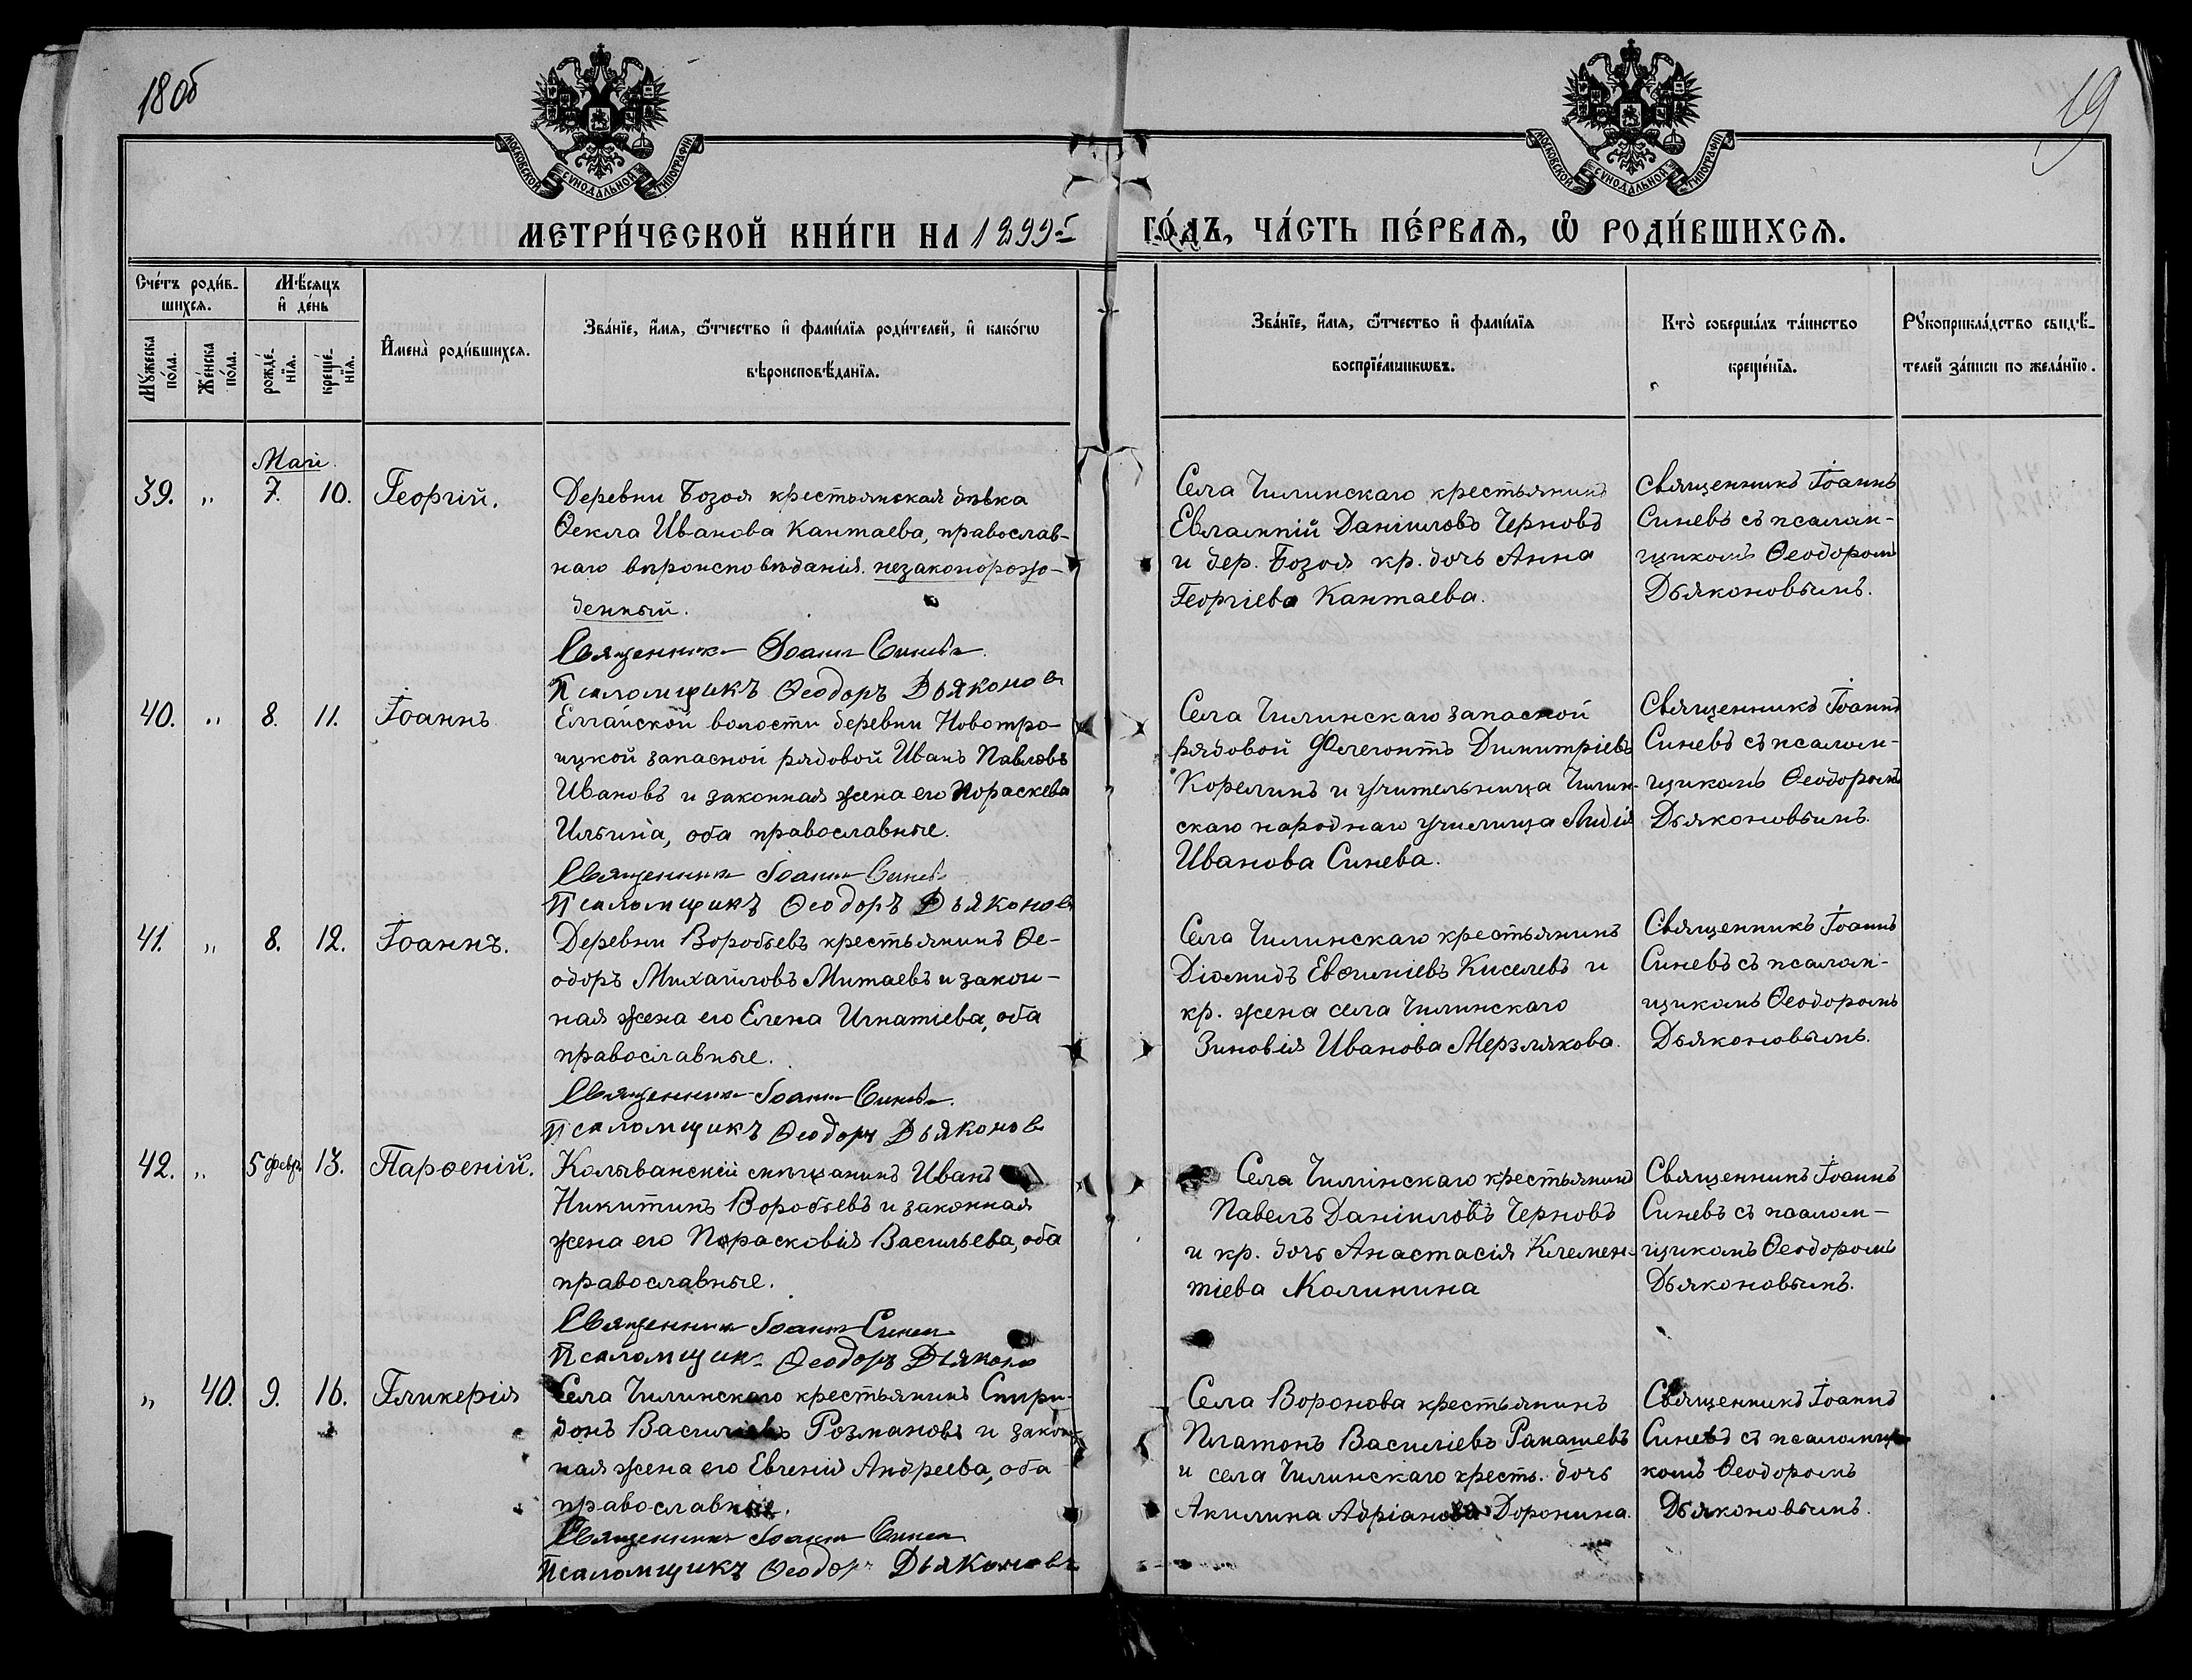 18об
19
МОСКОВСКОЙ СѴНОДАЛЬНОЙ ТИПОГРАФІИ
МОСКОВСКОЙ СѴНОДАЛЬНОЙ ТИПОГРАФІИ
МЕТРИ́ЧЕСКОЙ КНИ́ГИ НА 1899й ГО́ДЪ, ЧА́СТЬ ПЕ́РВАѦ, Ѡ҆ РОДИ́ВШИХСѦ.
Сче́тъ роди́в-
шихсѧ.
Мѣ́сѧцъ
и҆ де́нь
Мꙋ́жеска
по́ла.
Же́нска
по́ла.
рожде́-
нїѧ.
креще́-
нїѧ.
И҆мена̀ роди́вшихсѧ.
Зва́нїе, и҆́мѧ, ѻ҆́тчество и҆ фами́лїѧ роди́телей, и҆ како́гѡ
вѣроисповѣ́данїѧ.
Зва́нїе, и҆́мѧ, ѻ҆́тчество и҆ фами́лїѧ
воспрїе́мникѡвъ.
Кто̀ соверша́лъ та́инство
креще́нїѧ.
Рꙋкоприкла́дство свидѣ́-
телей за́писи по жела́нїю.
Май
39. „ 7. 10. Георгій.
Деревни Бозоя крестьянская дѣвка
Ѳекла Иванова Кантаева, православ-
наго вѣроисповѣданія. незаконорож-
денный.
Священникъ Іоаннъ Синевъ
Псаломщикъ Ѳеодоръ Дьяконов
Села Чилинскаго крестьянинъ
Евлампій Даніиловъ Черновъ
и дер. Бозоя кр. дочь Анна
Георгіева Кантаева.
Священникъ Іоаннъ
Синевъ съ псалом-
щикомъ Ѳеодоромъ
Дьяконовымъ.
40. „ 8. 11. Іоаннъ
Елгайской волости деревни Новотро-
ицкой запасной рядовой Иванъ Павловъ
Ивановъ и законная жена его Пораскева
Ильина, оба православные.
Священникъ Іоаннъ Синевъ
Псаломщикъ Ѳеодоръ Дьяконовъ
Села Чилинскаго запасной
рядовой Флегонтъ Димитріевъ
Корелинъ и учительница Чилин-
скаго народнаго училища Лидія
Иванова Синева.
Священникъ Іоаннъ
Синевъ съ псалом-
щикомъ Ѳеодоромъ
Дьяконовымъ.
41. „ 8. 12. Іоаннъ.
Деревни Воробьевъ крестьянинъ Ѳе-
одоръ Михайловъ Митаевъ и закон-
ная жена его Елена Игнатіева, оба
православные.
Священникъ Іоаннъ Синевъ
Псаломщикъ Ѳеодоръ Дьяконов
Села Чилинскаго крестьянинъ
Діомидъ Евѳиміевъ Киселевъ и
кр. жена села Чилинскаго
Зиновія Иванова Мерзлякова.
Священникъ Іоаннъ
Синевъ съ псалом-
щикомъ Ѳеодоромъ
Дьяконовымъ.
42. „ 5 февр. 13. Парѳеній.
Колыванскій мѣщанинъ Иванъ
Никитинъ Воробьевъ и законная
жена его Порасковія Васильева, оба
православные.
Священникъ Іоаннъ Синевъ
Псаломщик Ѳеодоръ Дьяконо
Села Чилинскаго крестьянинъ
Павелъ Даніиловъ Черновъ
и кр. дочь Анастасія Клемен-
тіева Калинина
Священникъ Іоаннъ
Синевъ съ псалом-
щикомъ Ѳеодоромъ
Дьяконовымъ.
„ 40. 9. 16. Гликерія
Села Чилинскаго крестьянинъ Спири-
донъ Василіевъ Розмановъ и закон-
ная жена его Евгенія Андреева, оба
православные.
Священникъ Іоаннъ Синев
Псаломщикъ Ѳеодоръ Дьяконовъ
Села Воронова крестьянинъ
Платонъ Василіевъ
и села Чилинскаго кресть. дочь
Акилина Адріанова Доронина.
Священникъ Іоаннъ
Синевъ съ псаломщи-
комъ Ѳеодоромъ
Дьяконовымъ.